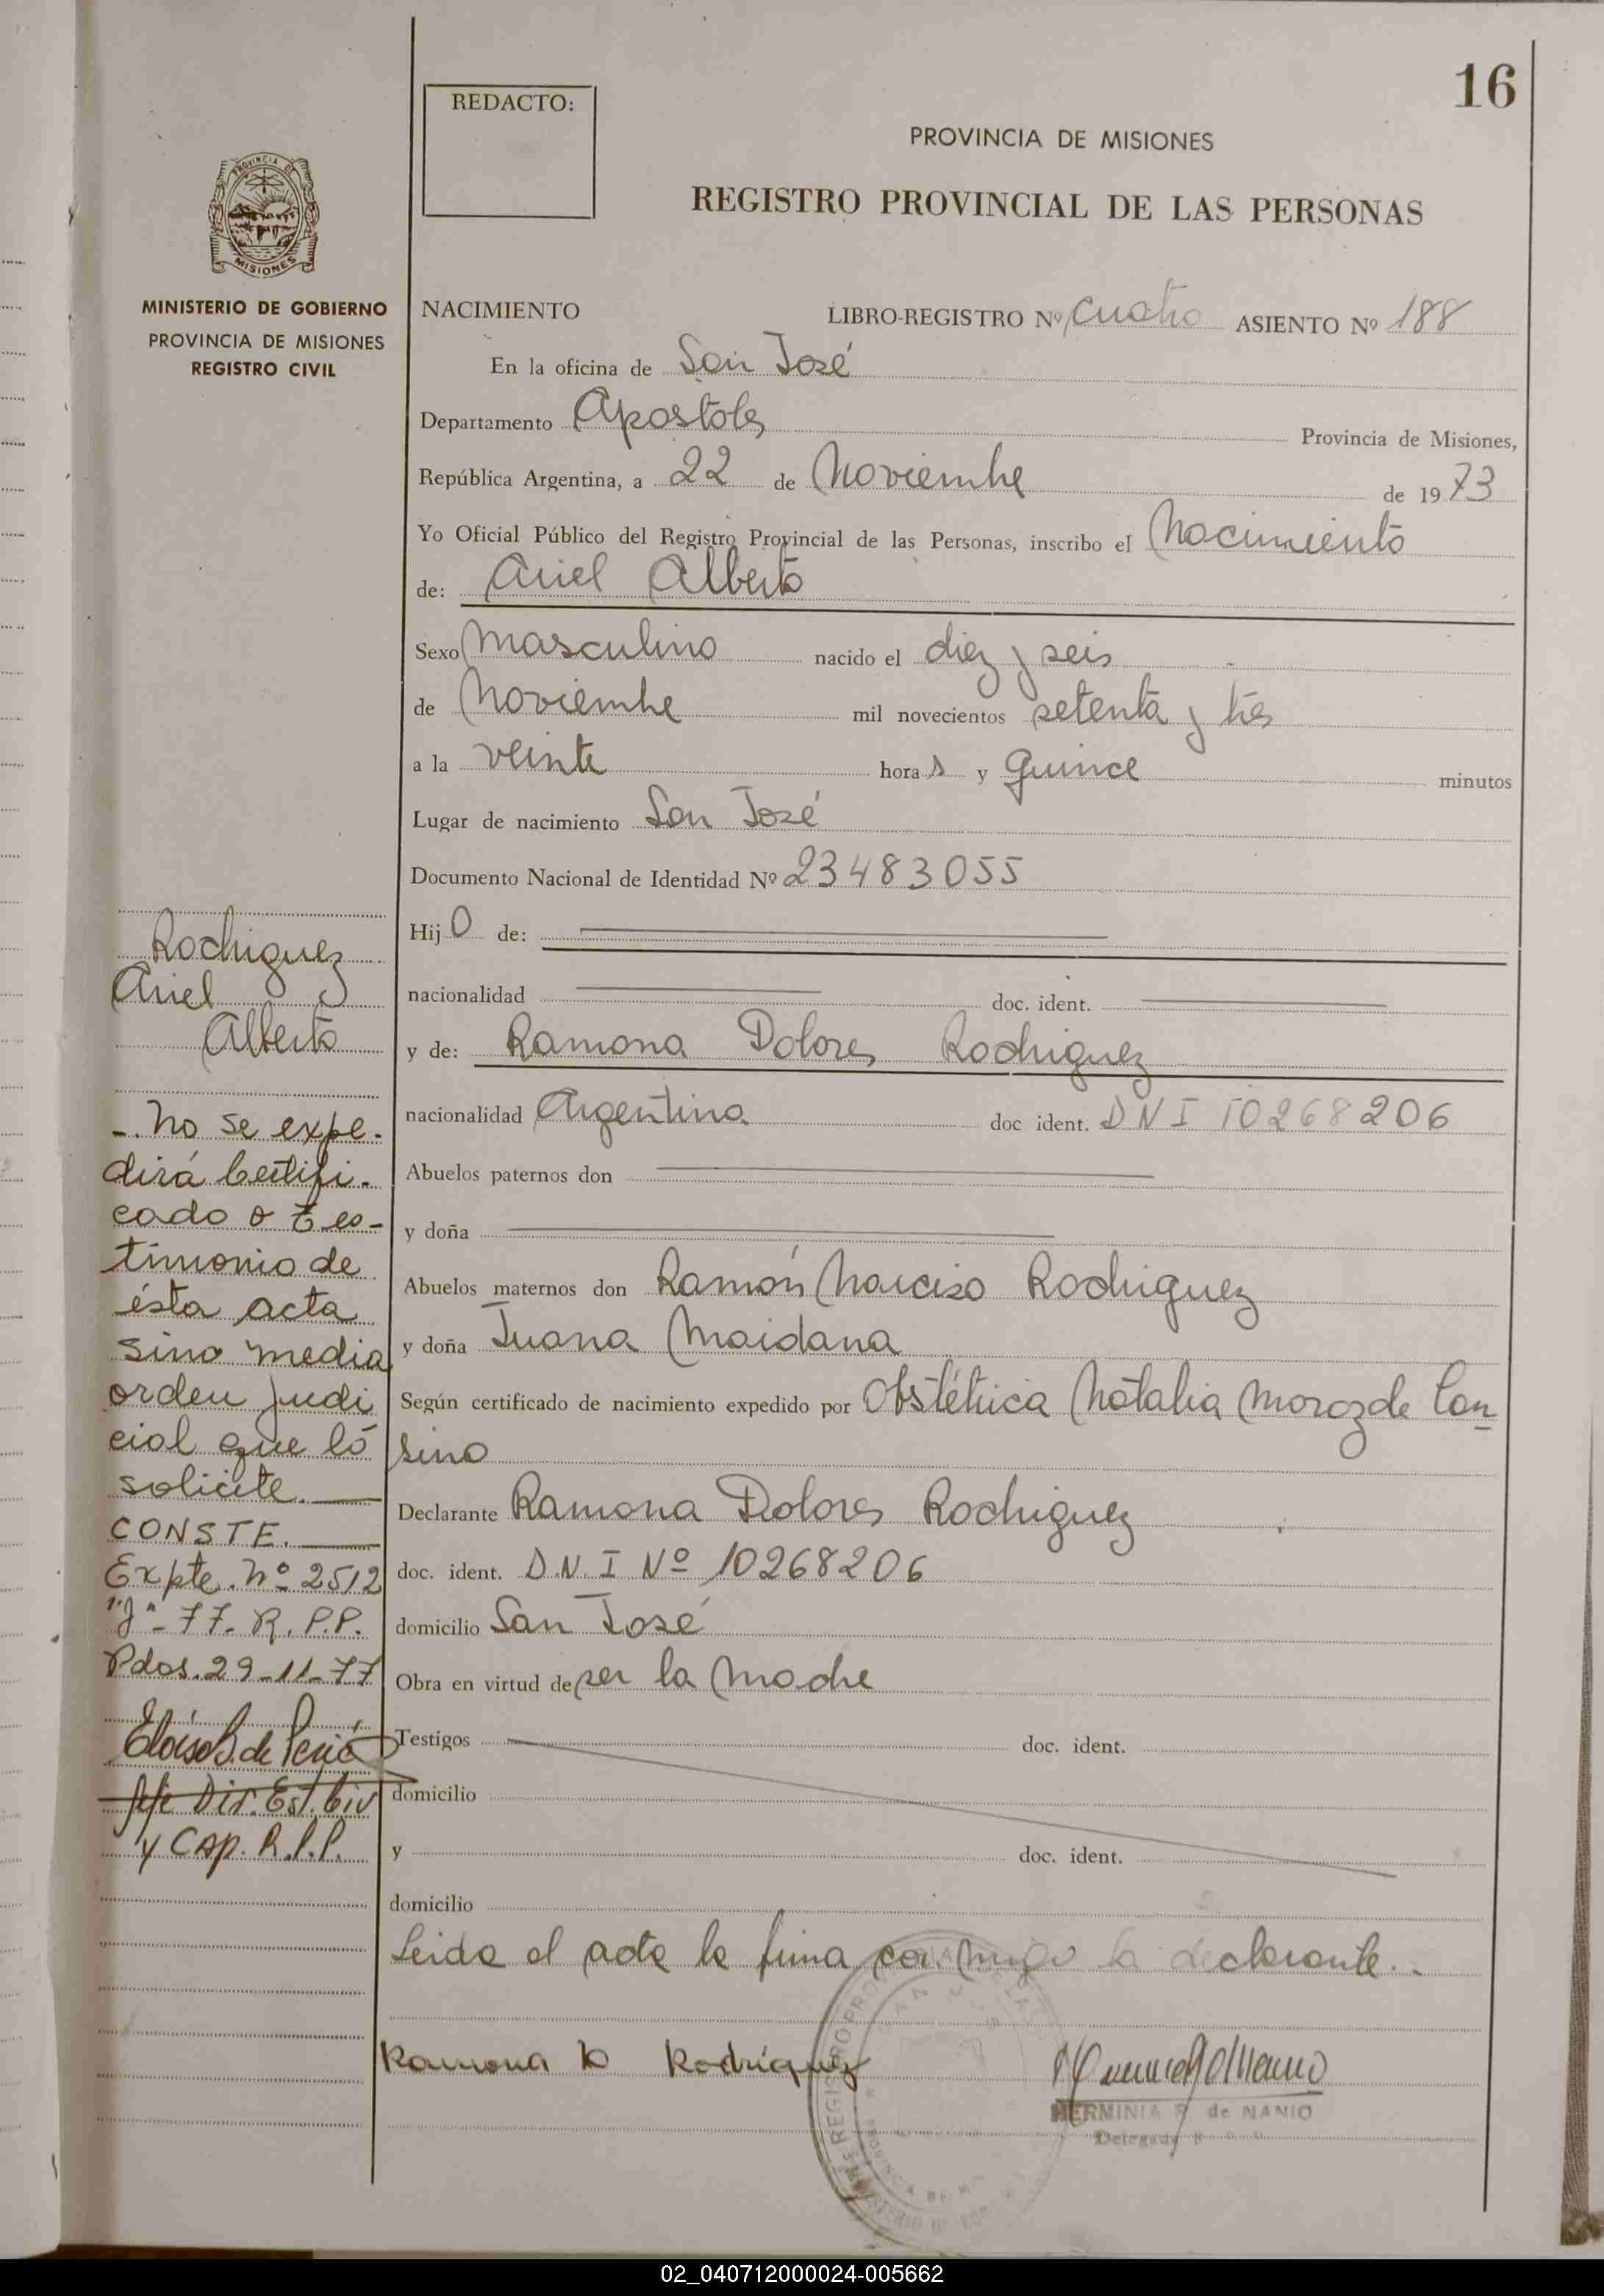 16
REDACTO:
PROVINCIA DE MISIONES
REGISTRO PROVINCIAL DE LAS PERSONAS
PROVINCIA DE
MISIONES
MINISTERIO DE GOBIERNO
PROVINCIA DE MISIONES
REGISTRO CIVIL
NACIMIENTO LIBRO-REGISTRO Nº cuatro ASIENTO Nº 188
En la oficina de San José
Departamento Apostoles Provincia de Misiones,
República Argentina, a 22 de Noviembre de 1973
Yo Oficial Público del Registro Provincial de las Personas, inscribo el Nacimiento
de: Ariel Alberto
Sexo Masculino nacido el diez y seis
de Noviembre mil novecientos setenta y tres
a la veinte horas y quince minutos
Lugar de nacimiento San José
Documento Nacional de Identidad Nº 23483055
Hijo de:
nacionalidad doc. ident.
y de: Ramona Dolores Rodriguez
nacionalidad Argentina doc ident. DNI 10268206
Abuelos paternos don
y doña
Abuelos maternos don Ramón Narciso Rodriguez
y doña Juana Maidana
Según certificado de nacimiento expedido por Obstétrica Natalia Moroz de Can
sino
Declarante Ramona Dolores Rodriguez
doc. ident. D.N.I Nº 10268206
domicilio San José
Obra en virtud de ser la Madre
Testigos doc. ident.
domicilio
y doc. ident.
domicilio
Leida el acta la firma conmigo la declarante..
Ramona D Rodríguez
HERMINIA R de NANIO
Delegada
Rodriguez
Ariel
Alberto
-. No se expe-
dirá Certifi-
cado o Tes-
timonio de
ésta acta
sino media
orden judi
cial que lo
solicite.
CONSTE.
Expte. Nº 2512
77- R.P.P.
Pdas. 29-11-77
Jefe Dir. Est. Civ
y Cap. R.P.P.
02_040712000024-005662